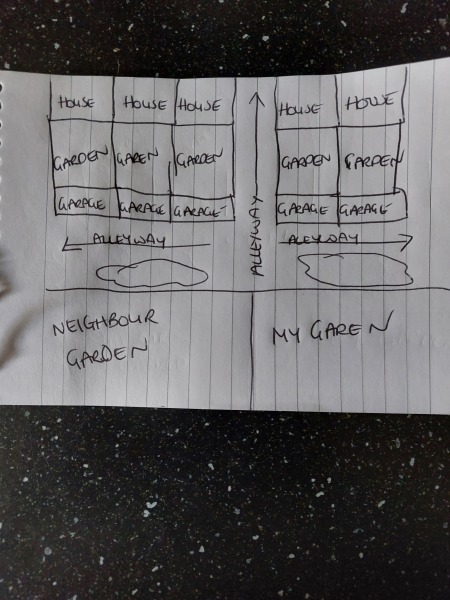 HOUSE HOUSE HOUSE HOUSE HOUSE
GARDEN GAREN GARDEN GARDEN GARDEN
GARAGE GARAGE GARAGE GARAGE GARAGE
ALLEYWAY ALLEYWAY ALLEYWAY
NEIGHBOUR
GARDEN
MY GAREN